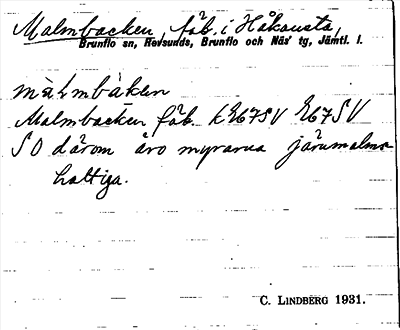 Malmbacken, fäb. i Håkansta,
Brunflo sn, Revsunds, Brunflo och Näs' tg, Jämtl. l.
màlmbàkken
Malmbacken fäb. k E67SV E67SV
SO därom äro myrarna järnmalms-
haltiga.
C. LINDBERG 1931.